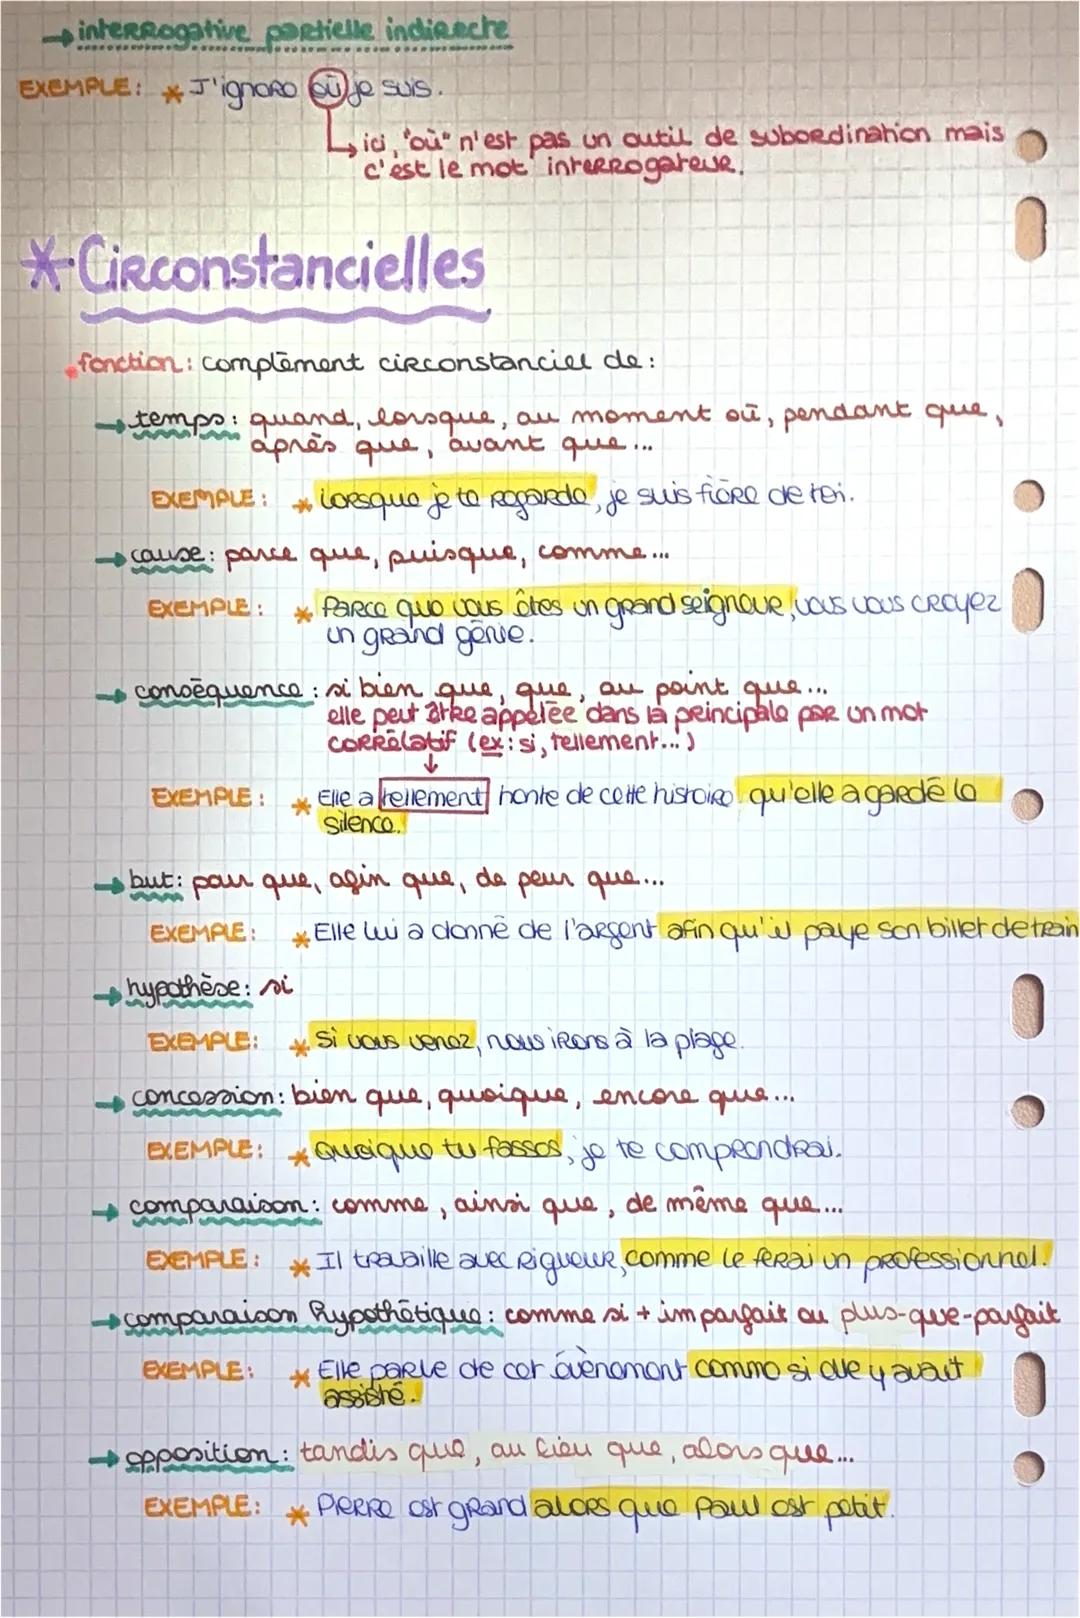 → interrogative partielle indirecte
EXEMPLE: * J'ignore où je suis.
↳ ici, "où" n'est pas un outil de subordination mais
c'est le mot interrogateur.
* Circonstancielles
• fonction : complément circonstanciel de :
→ temps : quand, lorsque, au moment où, pendant que,
après que, avant que...
EXEMPLE : * Lorsque je te regarde, je suis fière de toi.
→ cause : parce que, puisque, comme...
EXEMPLE : * Parce que vous êtes un grand seigneur, vous vous croyez
un grand génie.
→ conséquence : si bien que, que, au point que...
elle peut être appelée dans la principale par un mot
corrélatif (ex : si, tellement...)
↓
EXEMPLE : * Elle a tellement honte de cette histoire qu'elle a gardé le
silence.
→ but : pour que, afin que, de peur que...
EXEMPLE : * Elle lui a donné de l'argent afin qu'il paye son billet de train
→ hypothèse : si
EXEMPLE : * Si vous venez, nous irons à la plage.
→ concession : bien que, quoique, encore que...
EXEMPLE : * Quoique tu fasses, je te comprendrai.
→ comparaison : comme, ainsi que, de même que...
EXEMPLE : * Il travaille avec rigueur, comme le ferai un professionnel.
→ comparaison hypothétique : comme si + imparfait ou plus-que-parfait
EXEMPLE : * Elle parle de cet évènement comme si elle y avait
assisté.
→ opposition : tandis que, au lieu que, alors que...
EXEMPLE : * Pierre est grand alors que Paul est petit.